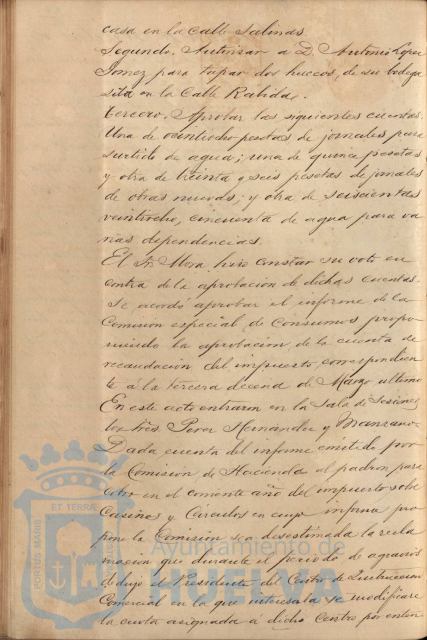 casa en la Calle Salinas
Segundo. Autorizar a D. Antonio Lopez
Gomez para tapar dos huecos, de su bodega
sita en la Calle Rabida.
Tercero. Aprobar las siguientes cuentas.
Una de veintiocho pesetas de jornales para
surtido de agua; una de quince pesetas
y otra de treinta y seis pesetas de jornales
de obras nuevas; y otra de seiscientas
veintiocho, cincuenta de agua para va
rias dependencias.
El Sr. Mora hizo constar su voto en
contra de la aprobacion de dichas cuentas.
Se acordó aprobar el informe de la
Comision especial de Consumos propo
niendo la aprobacion, de la cuenta de
recaudacion del impuesto, correspondien
te a la tercera decena de Marzo ultimo
En este acto entraron en la Sala de Sesiones
los Sres Perez Hernández y Manzano
Dada cuenta del informe emitido por
la Comision de Hacienda al padron para
cobro en el corriente año del impuesto sobre
Casinos y Circulos en cuyo informe pro
pone la Comision sea desestimada la recla
macion que durante el periodo de agravios
dedujo el Presidente del Centro de Instruccion
Comercial en la que interesaba se modificare
la cuota asignada a dicho Centro por enten
PORTUS MARIS ET TERRAE
Ayuntamiento de
HUELVA